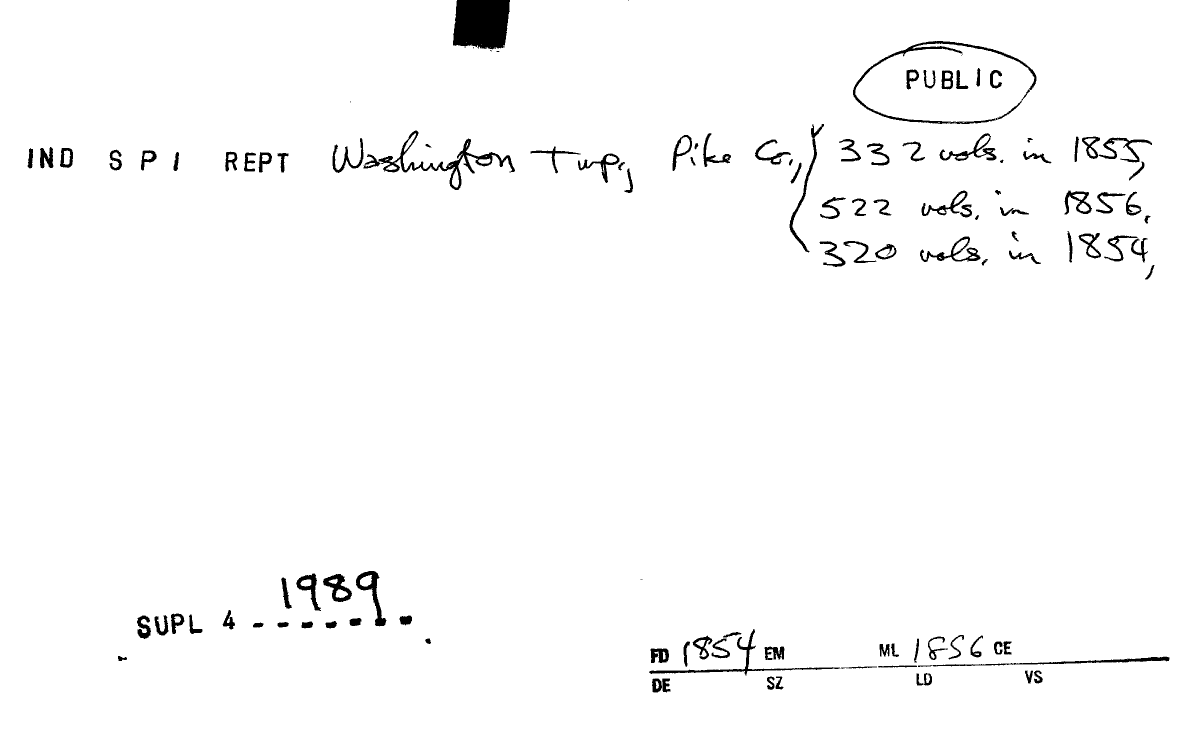 PUBLIC
IND S P I REPT Washington Twp., Pike Co., 332 vols. in 1855,
522 vols. in 1856,
320 vols. in 1854,
1989
SUPL 4 - - - - - - -
FD 1854 EM ML 1856 CE
DE SZ LD VS